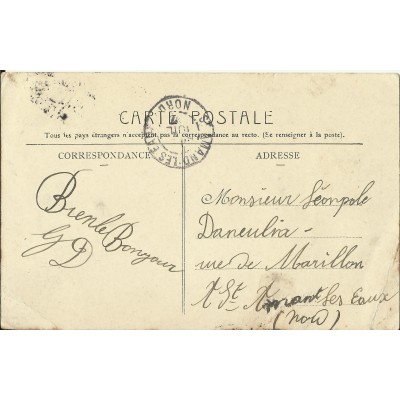 CARTE POSTALE
Tous les pays étrangers n'acceptent pas la correspondance au recto. (Se renseigner à la poste).
CORRESPONDANCE
ADRESSE
Bien le Bonjour
GD
Monsieur Léopole
Daneulin
rue de Marillon
A St Amant Les Eaux
(Nord)
NORD